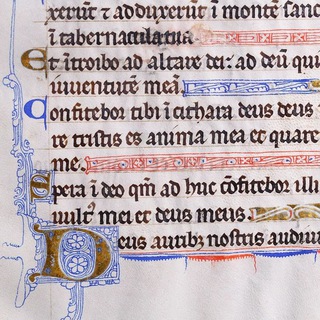 xerūt ⁊ adduxerūt ī montē sanc
ī tabernacula tua
Et ītroibo ad altare dei: ad deū qui
iuuentutē meā.
Confitebor tibi ī cithara deus deus
re tristis es anima mea et quare
me.
Spera ī deo qm̄ ad huc cōfitebor illi
uultꝰ mei et deus meus.
Deus auribꝫ nostris audiui